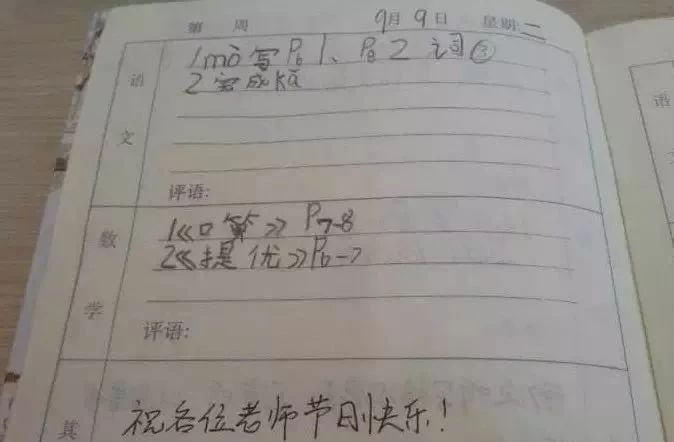 第 周 9月9日 星期二
语文
1 mò写P61、P62词③
2 完成kǎ
评语:
数学
1《口算》P7-8
2《提优》P6-7
评语:
其
祝各位老师节刚快乐!
语